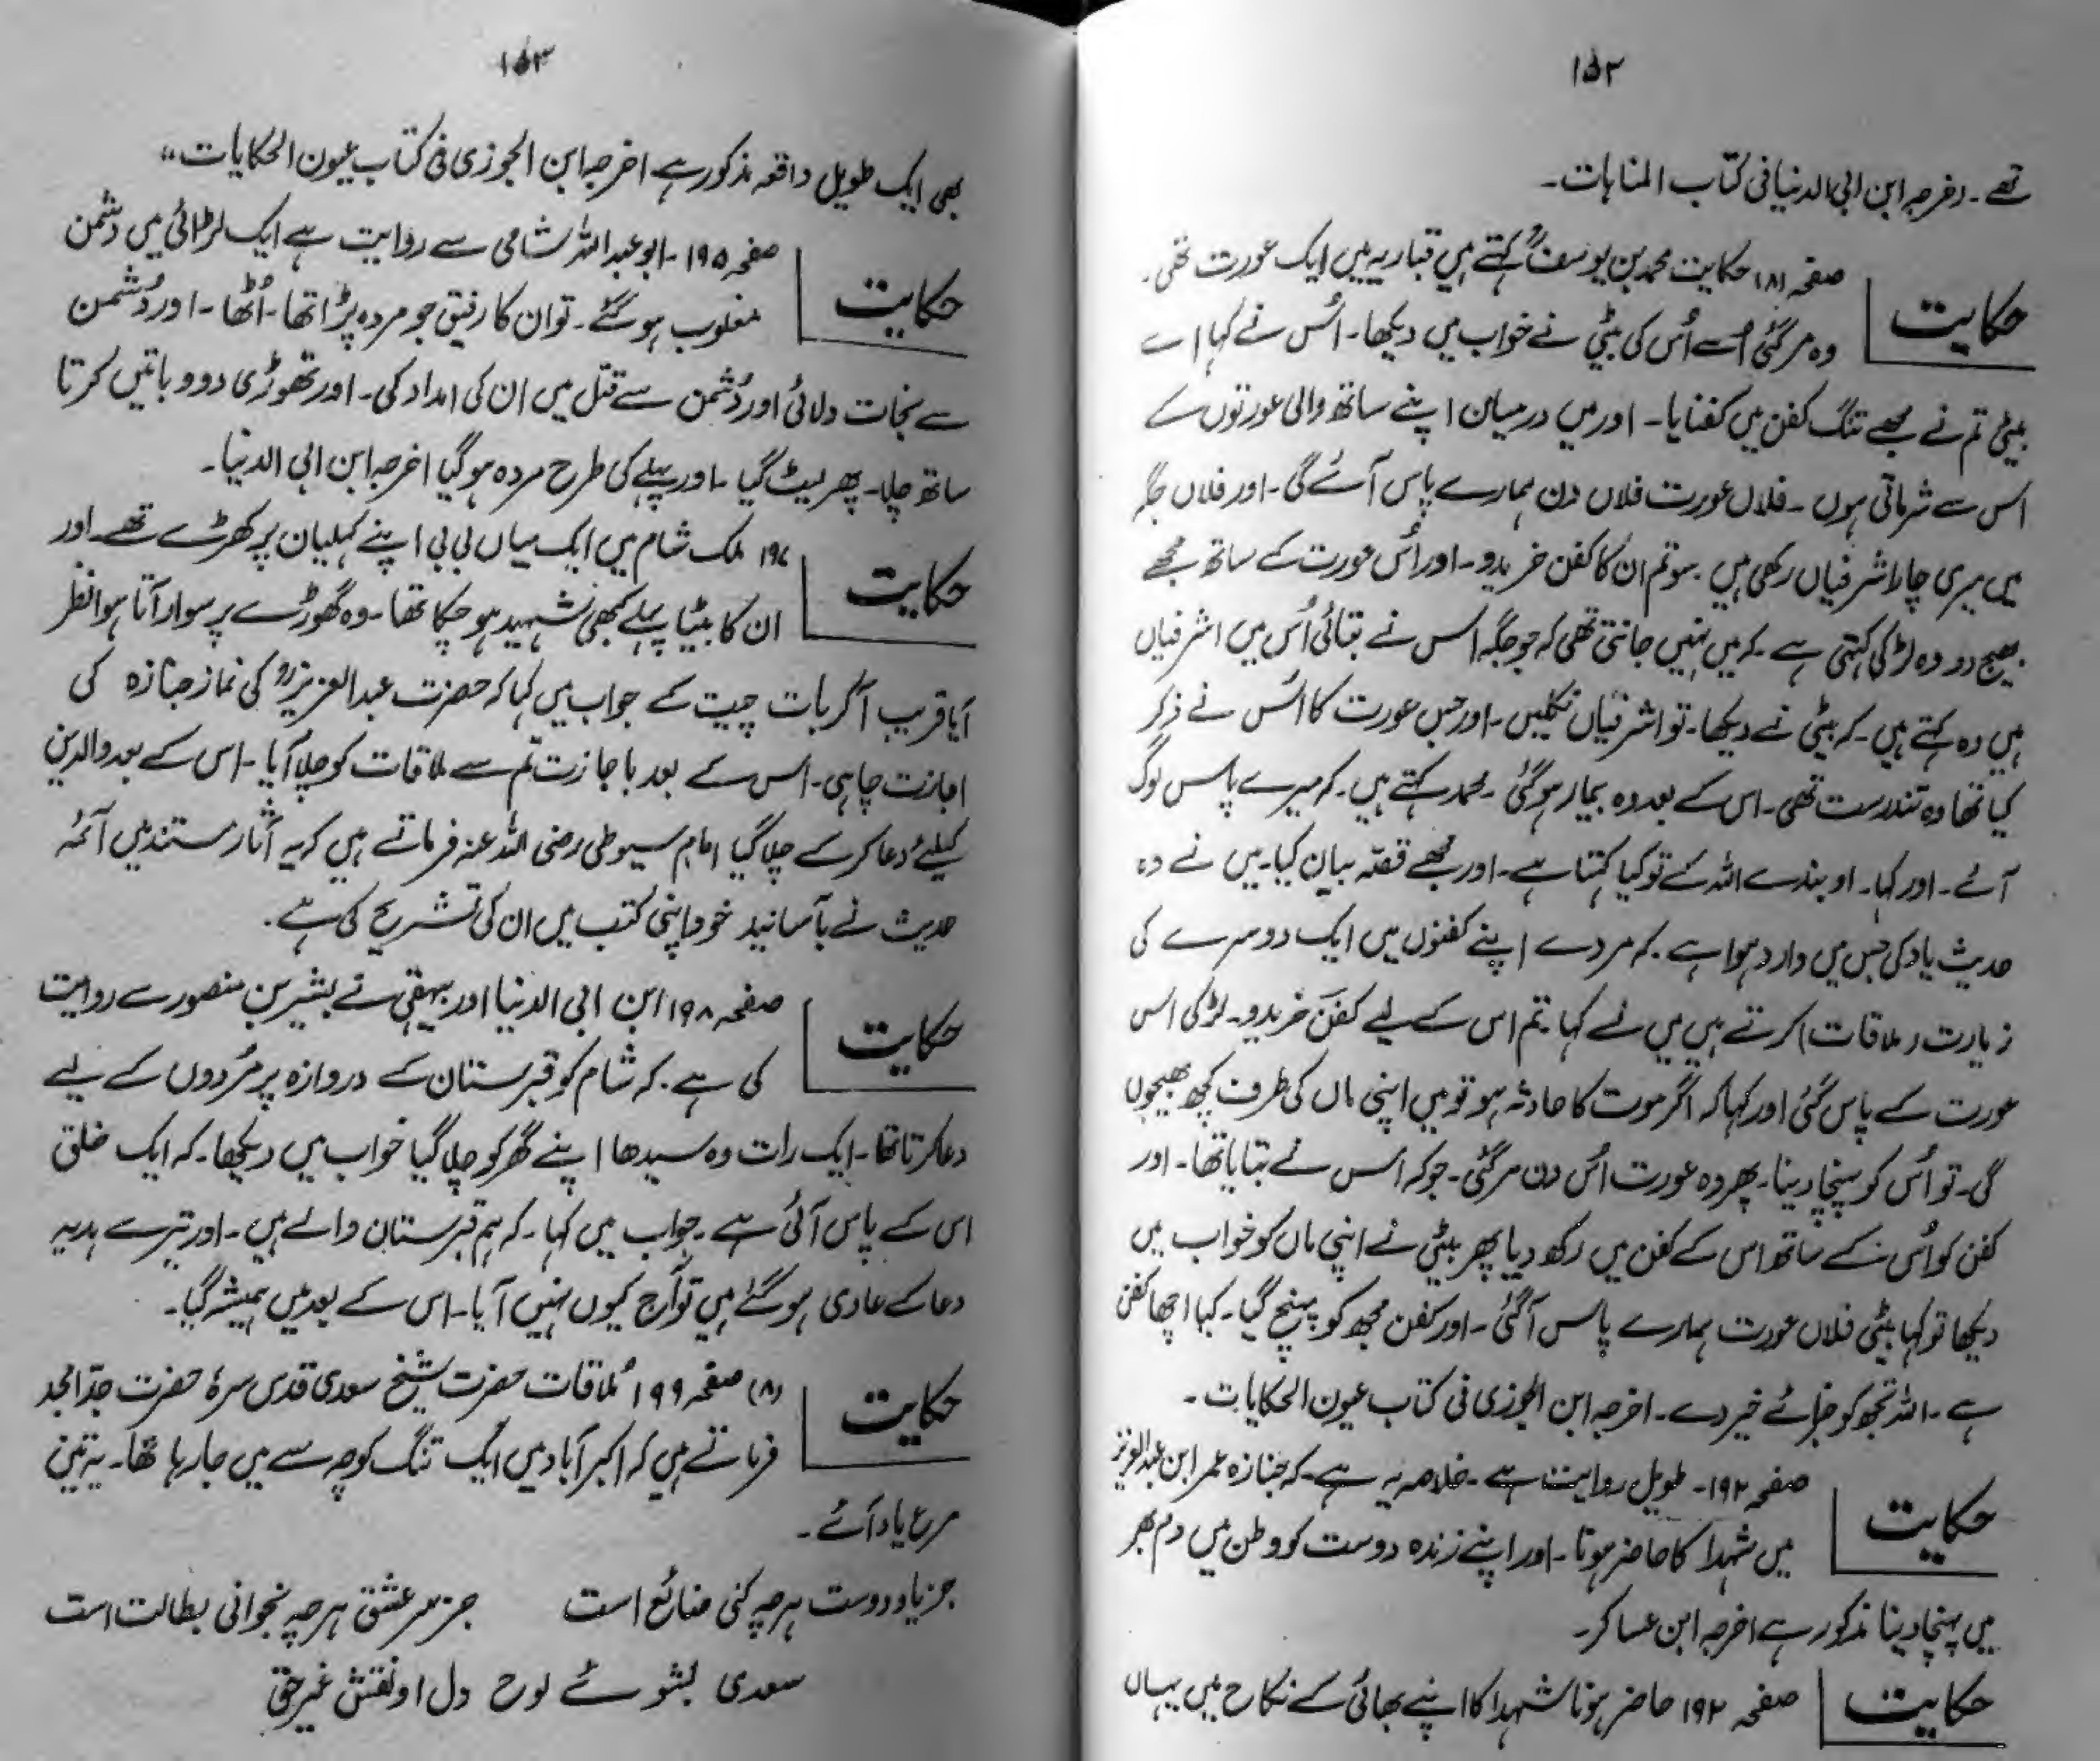 ۱۵۲
تھے ۔ دخرجہ ابن ابی الدنیا فی کتاب المنامات۔
حکایت
صفحہ ۱۸۱ حکایت محمد بن یوسفؒ کہتے ہیں قباریہ میں ایک عورت تھی۔
وہ مر گئی اُسے اُس کی بیٹی نے خواب میں دیکھا۔ اُس نے کہا اے
بیٹی تم نے مجھے تنگ کفن میں کفنایا۔ اور میں درمیان اپنے ساتھ والی عورتوں کے
اس سے شرماتی ہوں ۔ فلاں عورت فلاں دن ہمارے پاس آئے گی ۔ اور فلاں جگہ
میں میری چار اشرفیاں رکھی ہیں ۔ سو تم ان کا کفن خریدو ۔ اور اُس عورت کے ساتھ مجھے
بھیج دو وہ لڑکی کہتی ہے ۔ کہ میں نہیں جانتی تھی کہ جو جگہ اس نے بتائی اُس میں اشرفیاں
ہیں وہ کہتے ہیں ۔ کہ بیٹی نے دیکھا۔ تو اشرفیاں نکلیں ۔ اور جس عورت کا اُس نے ذکر
کیا تھا وہ تندرست تھی ۔ اس کے بعد وہ بیمار ہو گئی ۔ محمد کہتے ہیں ۔ کہ میرے پاس لوگ
آئے ۔ اور کہا۔ او بندے اللہ کے تو کیا کہتا ہے ۔ اور مجھے قصّہ بیان کیا۔ میں نے وہ
حدیث یاد کی جس میں وارد ہوا ہے ۔ کہ مردے اپنے کفنوں میں ایک دوسرے کی
زیارت (ملاقات) کرتے ہیں میں نے کہا تم اس کے لیے کفن خریدو۔ لڑکی اس
عورت کے پاس گئی اور کہا کہ اگر موت کا حادثہ ہو تو میں اپنی ماں کی طرف کچھ بھیجوں
گی۔ تو اُس کو پہنچا دینا۔ پھر وہ عورت اُس دن مر گئی ۔ جو کہ اُس نے بتایا تھا ۔ اور
کفن کو اُس کے ساتھ اس کے کفن میں رکھ دیا پھر بیٹی نے اپنی ماں کو خواب میں
دیکھا تو کہا بیٹی فلاں عورت ہمارے پاس آ گئی ۔ اور کفن مجھ کو پہنچ گیا ۔ کیا اچھا کفن
ہے ۔ اللہ تجھ کو جزائے خیر دے ۔ اخرجہ ابن الجوزی فی کتاب عیون الحکایات ۔
حکایت
صفحہ ۱۹۲۔ طویل روایت ہے ۔ خلاصہ یہ ہے ۔ کہ جنازہ عمر ابن عبدالعزیز
میں شہدا کا حاضر ہوتا ۔ اور اپنے زندہ دوست کو وطن میں دم بھر
میں پہنچا دینا مذکور ہے اخرجہ ابن عساکر ۔
حکایت
صفحہ ۱۹۲ حاضر ہونا شہدا کا اپنے بھائی کے نکاح میں یہاں
۱۵۳
بھی ایک طویل واقعہ مذکور ہے اخرجہ ابن الجوزی فی کتاب عیون الحکایات"
حکایت
صفحہ ۱۹۵ ۔ ابو عبداللہ شامی سے روایت ہے ایک لڑائی میں دشمن
مغلوب ہو گئے ۔ تو ان کا رفیق جو مردہ پڑا تھا ۔ اُٹھا ۔ اور دُشمن
سے نجات دلائی اور دُشمن سے قتل میں ان کی امداد کی ۔ اور تھوڑی دور و باتیں کرتا
ساتھ چلا ۔ پھر لیٹ گیا ۔ اور پہلے کی طرح مردہ ہو گیا اخرجہ ابن ابی الدنیا ۔
حکایت
۱۹۷ ملک شام میں ایک میاں بی بی اپنے کہلیان پر کھڑے تھے اور
ان کا بیٹا پہلے کبھی شہید ہو چکا تھا ۔ وہ گھوڑے پر سوار آتا ہوا نظر
آیا قریب آ کر بات چیت کے جواب میں کہا کہ حضرت عبدالعزیزؒ کی نماز جنازہ کی
اجازت چاہی ۔ اُس کے بعد با جازت تم سے ملاقات کو چلا آیا ۔ اس کے بعد والدین
کیلئے دُعا کر کے چلا گیا امام سیوطی رضی اللہ عنہ فرماتے ہیں کہ یہ آثار مستند ہیں آئمہ
حدیث نے بآسانید خود اپنی کتب میں ان کی تشریح کی ہے ۔
حکایت
صفحہ ۱۹۸ ابن ابی الدنیا اور بیہقی نے بشیر بن منصور سے روایت
کی ہے ۔ کہ شام کو قبرستان کے دروازہ پر مُردوں کے لیے
دعا کرتا تھا ۔ ایک رات وہ سیدھا اپنے گھر کو چلا گیا خواب میں دیکھا۔ کہ ایک خلق
اس کے پاس آئی ہے ۔ جواب میں کہا ۔ کہ ہم قبرستان والے ہیں ۔ اور تیرے ہدیہ
دعا کے عادی ہو گئے ہیں تو آج کیوں نہیں آیا ۔ اس کے بعد میں ہمیشہ گیا ۔
حکایت
(۸) صفحہ ۱۹۹ مُلاقات حضرت شیخ سعدی قدس سرہٗ حضرت جدّ امجد
فرماتے ہیں کہ اکبر آباد میں ایک تنگ کوچہ سے میں جا رہا تھا ۔ یہ تین
مرع یاد آئے ۔
جز یاد دوست ہرچہ کنی ضائع است جز سر عشق ہرچہ بخوانی بطالت است
سعدی بشوئے لوح دل او نقش غیر حق